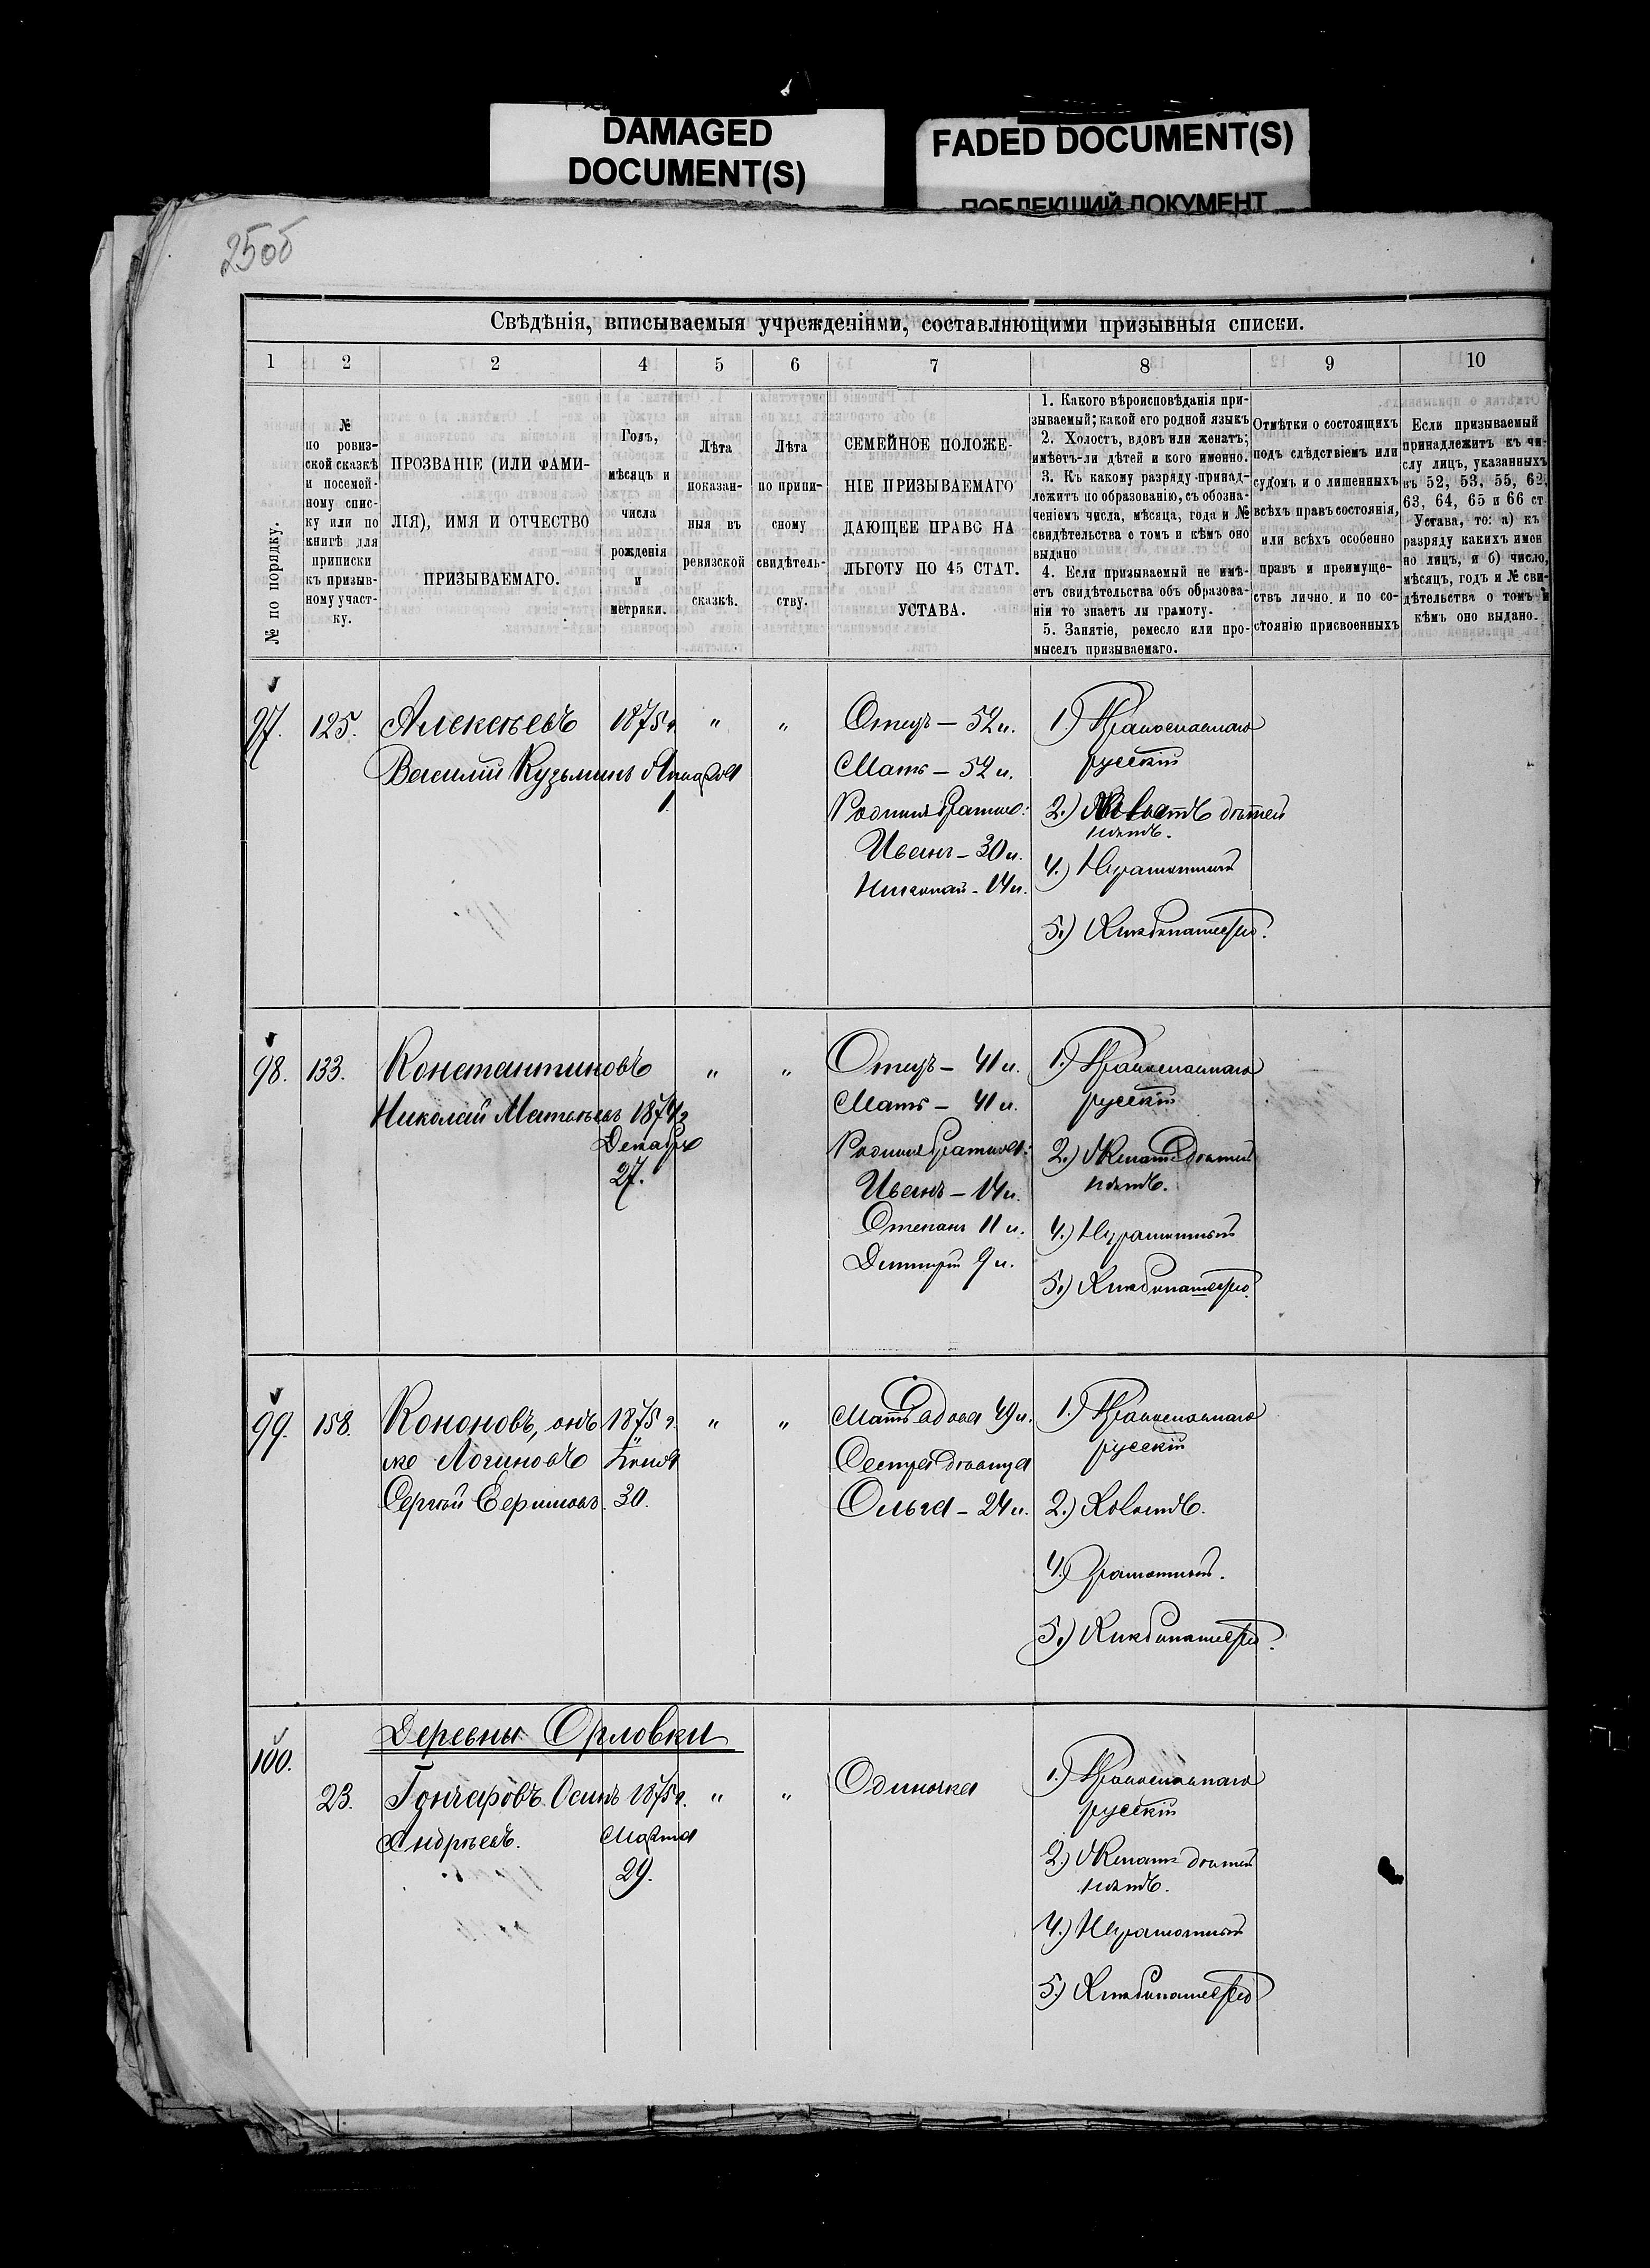 DAMAGED
DOCUMENT(S)
FADED DOCUMENT(S)
ПОБЛЕКШИЙ ДОКУМЕНТ
25об
Свѣдѣнія, вписываемыя учрежденіями, составляющими призывныя списки.
1 2 2 4 5 6 7 8 9 10
№ по порядку.
№
по ровиз-
ской сказкѣ
и посемей-
ному спис-
ку или по
книгѣ для
приписки
къ призыв-
ному участ-
ку.
ПРОЗВАНІЕ (ИЛИ ФАМИ-
ЛІЯ), ИМЯ И ОТЧЕСТВО
ПРИЗЫВАЕМАГО.
Годъ,
мѣсяцъ и
числа
рожденія
и
метрики.
Лѣта
показан-
ныя въ
ревизской
сказкѣ.
Лѣта
по припи-
сному
свидѣтель-
ству.
СЕМЕЙНОЕ ПОЛОЖЕ-
НІЕ ПРИЗЫВАЕМАГО
ДАЮЩЕЕ ПРАВО НА
ЛЬГОТУ ПО 45 СТАТ.
УСТАВА.
1. Какого вѣроисповѣданія при-
зываемый; какой его родной языкъ
2. Холостъ, вдовъ или женатъ;
имѣетъ-ли дѣтей и кого именно.
3. Къ какому разряду принад-
лежитъ по образованію, съ обозна-
ченіемъ числа, мѣсяца, года и №
свидѣтельства о томъ и кѣмъ оно
выдано
4. Если призываемый не имѣ-
етъ свидѣтельства объ образова-
ніи то знаетъ ли грамоту.
5. Занятіе, ремесло или про-
мыселъ призываемаго.
Отмѣтки о состоящихъ
подъ слѣдствіемъ или
судомъ и о лишенныхъ
всѣхъ правъ состоянія,
или всѣхъ особенно
правъ и преимуще-
ствъ лично и по со-
стоянію присвоенныхъ
Если призываемый
принадлежитъ къ чи-
слу лицъ, указанныхъ
въ 52, 53, 55, 62,
63, 64, 65 и 66 ст
Устава, то: а) къ
разряду какихъ имен
но лицъ, и б) число,
мѣсяцъ, годъ и № сви-
дѣтельства о томъ и
кѣмъ оно выдано.
97. 125. Алексѣевъ 1875 г. " "
Василій Кузьминъ
Отецъ – 52 л.
Мать – 52 л.
Родные братья:
Иванъ – 30 л.
Николай – 14 л.
1.) Православнаго
русскій
2.) дѣтей
нѣтъ.
4.) Неграмотный
5.) Хлѣбопашество.
98. 133. Константиновъ " "
Николай Матвѣевъ 1874 г
Декабря
27.
Отецъ – 41 л.
Мать – 41 л.
Родные братья:
Иванъ – 14 л.
Степанъ 11 л.
Дмитрій 9 л.
1.) Православнаго
русскій
2.) Женатъ дѣтей
нѣтъ.
4.) Неграмотный
5.) Хлѣбопашество.
99. 158. Кононовъ, онъ 1875 г. " "
же Логиновъ
Сергѣй 30.
Мать вдова 49 л.
Сестра дѣвица
Ольга – 24 л.
1.) Православнаго
русскій
2.) Холостъ.
4.) Грамотный.
5.) Хлѣбопашество.
Деревни Орловки
100.
23. Гончаровъ Осипъ 1875 г. " "
Андреевъ. Марта
29.
Одиночка
1.) Православнаго
русскій
2.) Женатъ дѣтей
нѣтъ.
4.) Неграмотный
5.) Хлѣбопашество